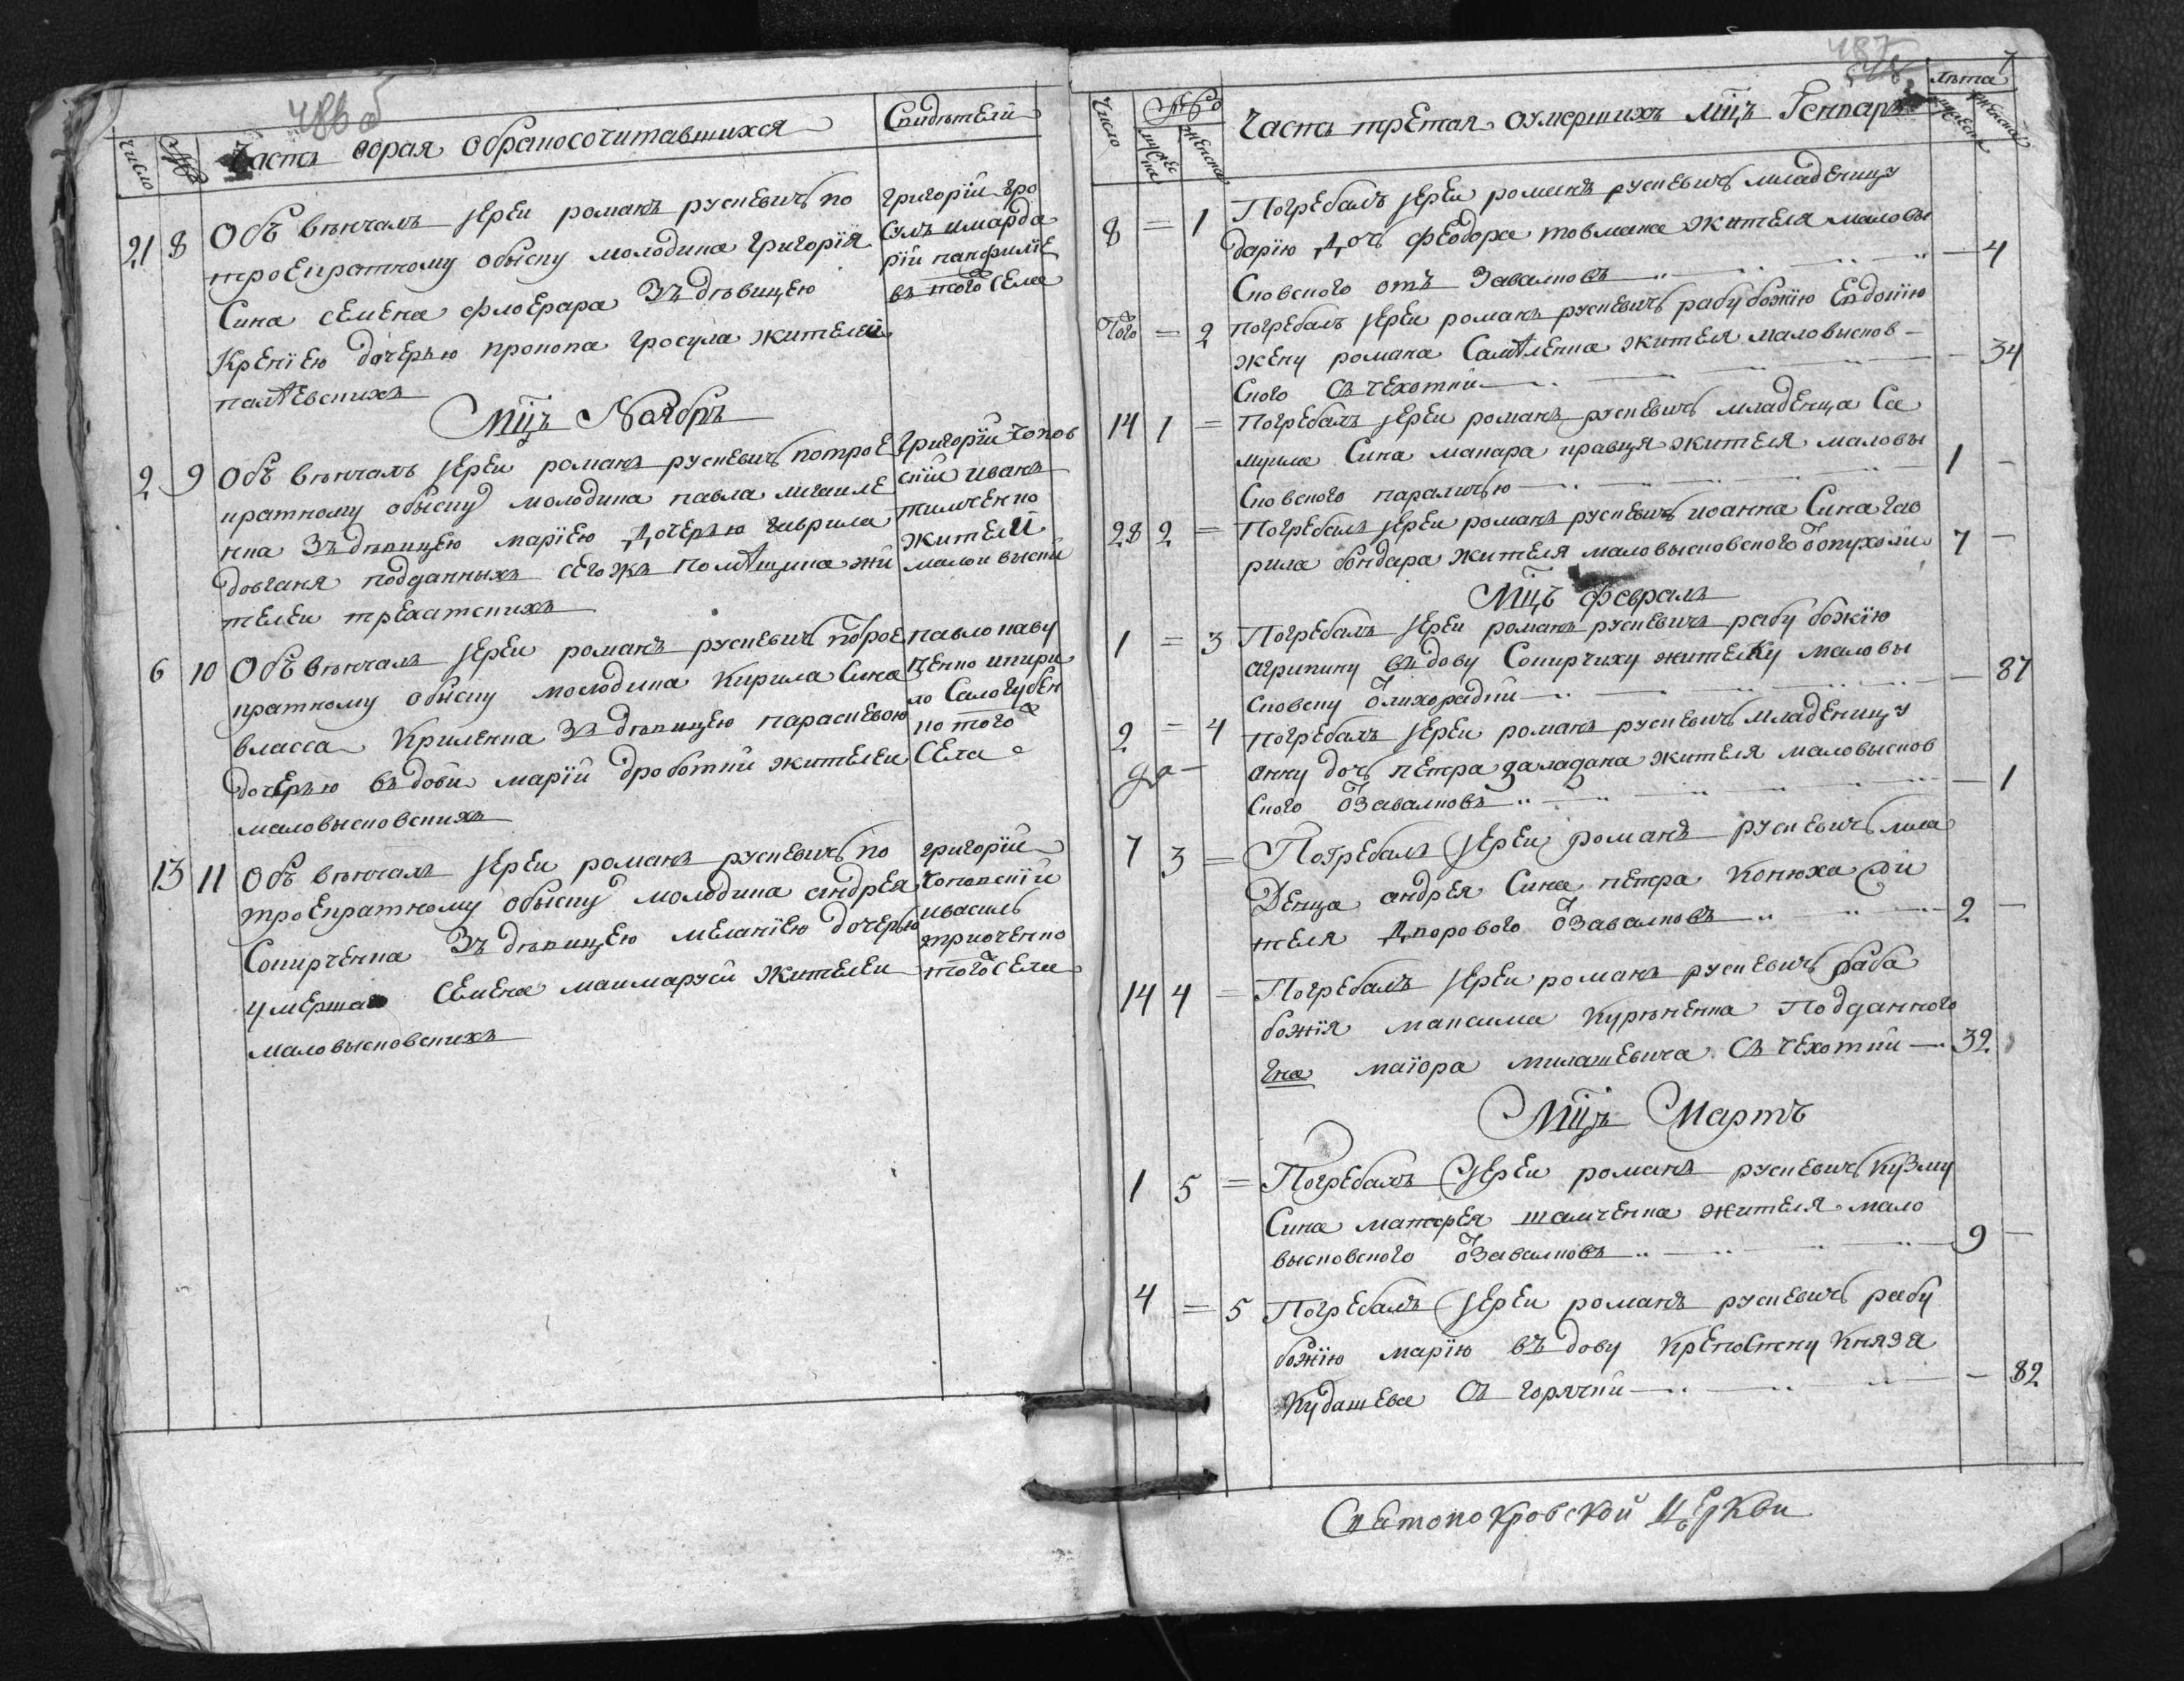 486 б
Число
№
Часть вторая обрачносочитавшихся
Свидѣтели
21 8
Объвѣнчалъ іерей романъ рускевичъ по
троекратному обыску молодика григорія
Сина семена флоерара Зъ дѣвицею
Ксеніею дочерью прокопа гросула жителей
григорій гро
въ того села
Мцъ Ноябрь
2 9
Объвѣнчалъ іерей романъ рускевичъ потрое
кратному обыску молодика павла михаиле
нка Зъ дѣвицею маріею дочерью гаврила
довганя подданныхъ сегожъ помѣщика жи
телей
григорій
скій иванъ
жителѣ
6 10
Объвѣнчалъ іерей романъ рускевичъ потрое
кратному обыску молодика Кирила Сина
власса Криленка Зъ дѣвицею параскевою
дочерью въдови маріи дроботки жителей
маловысковскихъ
павло
ченко икири
ло Салогубен
ко того
Села
13 11
Объвѣнчалъ іерей романъ рускевичъ по
троекратному обыску молодика андрея
Сопирченка Зъ дѣвицею меланіею дочерью
умершаго Семена жителей
маловысковскихъ
григорій
ивасиль
того села
487
Число
№
мужеска
женска
Часть третая оумершихъ Мцъ Генварь
лѣта
мужеска
женска
8 = 1
Погребалъ іерей романъ рускевичъ младеницу
дарію доч феодора товмача жителя маловы
сковского отъ Завалковъ — 4
Того = 2
погребалъ іерей романъ рускевичъ рабу божію Евдокію
жену романа жителя маловысков
ского Съ чехотки — 34
14 1 =
Погребалъ іерей романъ рускевичъ младенца Са
муила Сина макара кравця жителя маловы
сковского параличью 1 —
28 2 =
Погребалъ іерей романъ рускевичъ иоанна Сина гав
рила бондара жителя маловысковского ѿопухоли 7 —
Мцъ февраль
1 = 3
Погребалъ іерей романъ рускевичъ рабу божію
агрипину въдову Сопирчиху жителку маловы
сковску ѿлихорадки — 87
2 = 4
погребалъ іерей романъ рускевичъ младеницу
анну доч петра галадана жителя маловысков
ского ѿЗавалковъ — 1
7 3 =
Погребалъ іерей романъ рускевичъ мла
Денца андрея Сина петра Конюха жи
теля дворового ѿЗавалковъ 2 —
14 4 =
Погребалъ іерей романъ рускевичъ раба
божія максима подданного
гна маіора милашевича Съ чехотки 32
Мцъ Мартъ
1 5 =
Погребалъ іерей романъ рускевичъ Кузму
Сина матфея жителя мало
высковского ѿЗавалковъ 9 —
4 = 5
Погребалъ іерей романъ рускевичъ рабу
божію марію въдову князя
Кудашева Съ горячки — 82
Святопокровской церкви